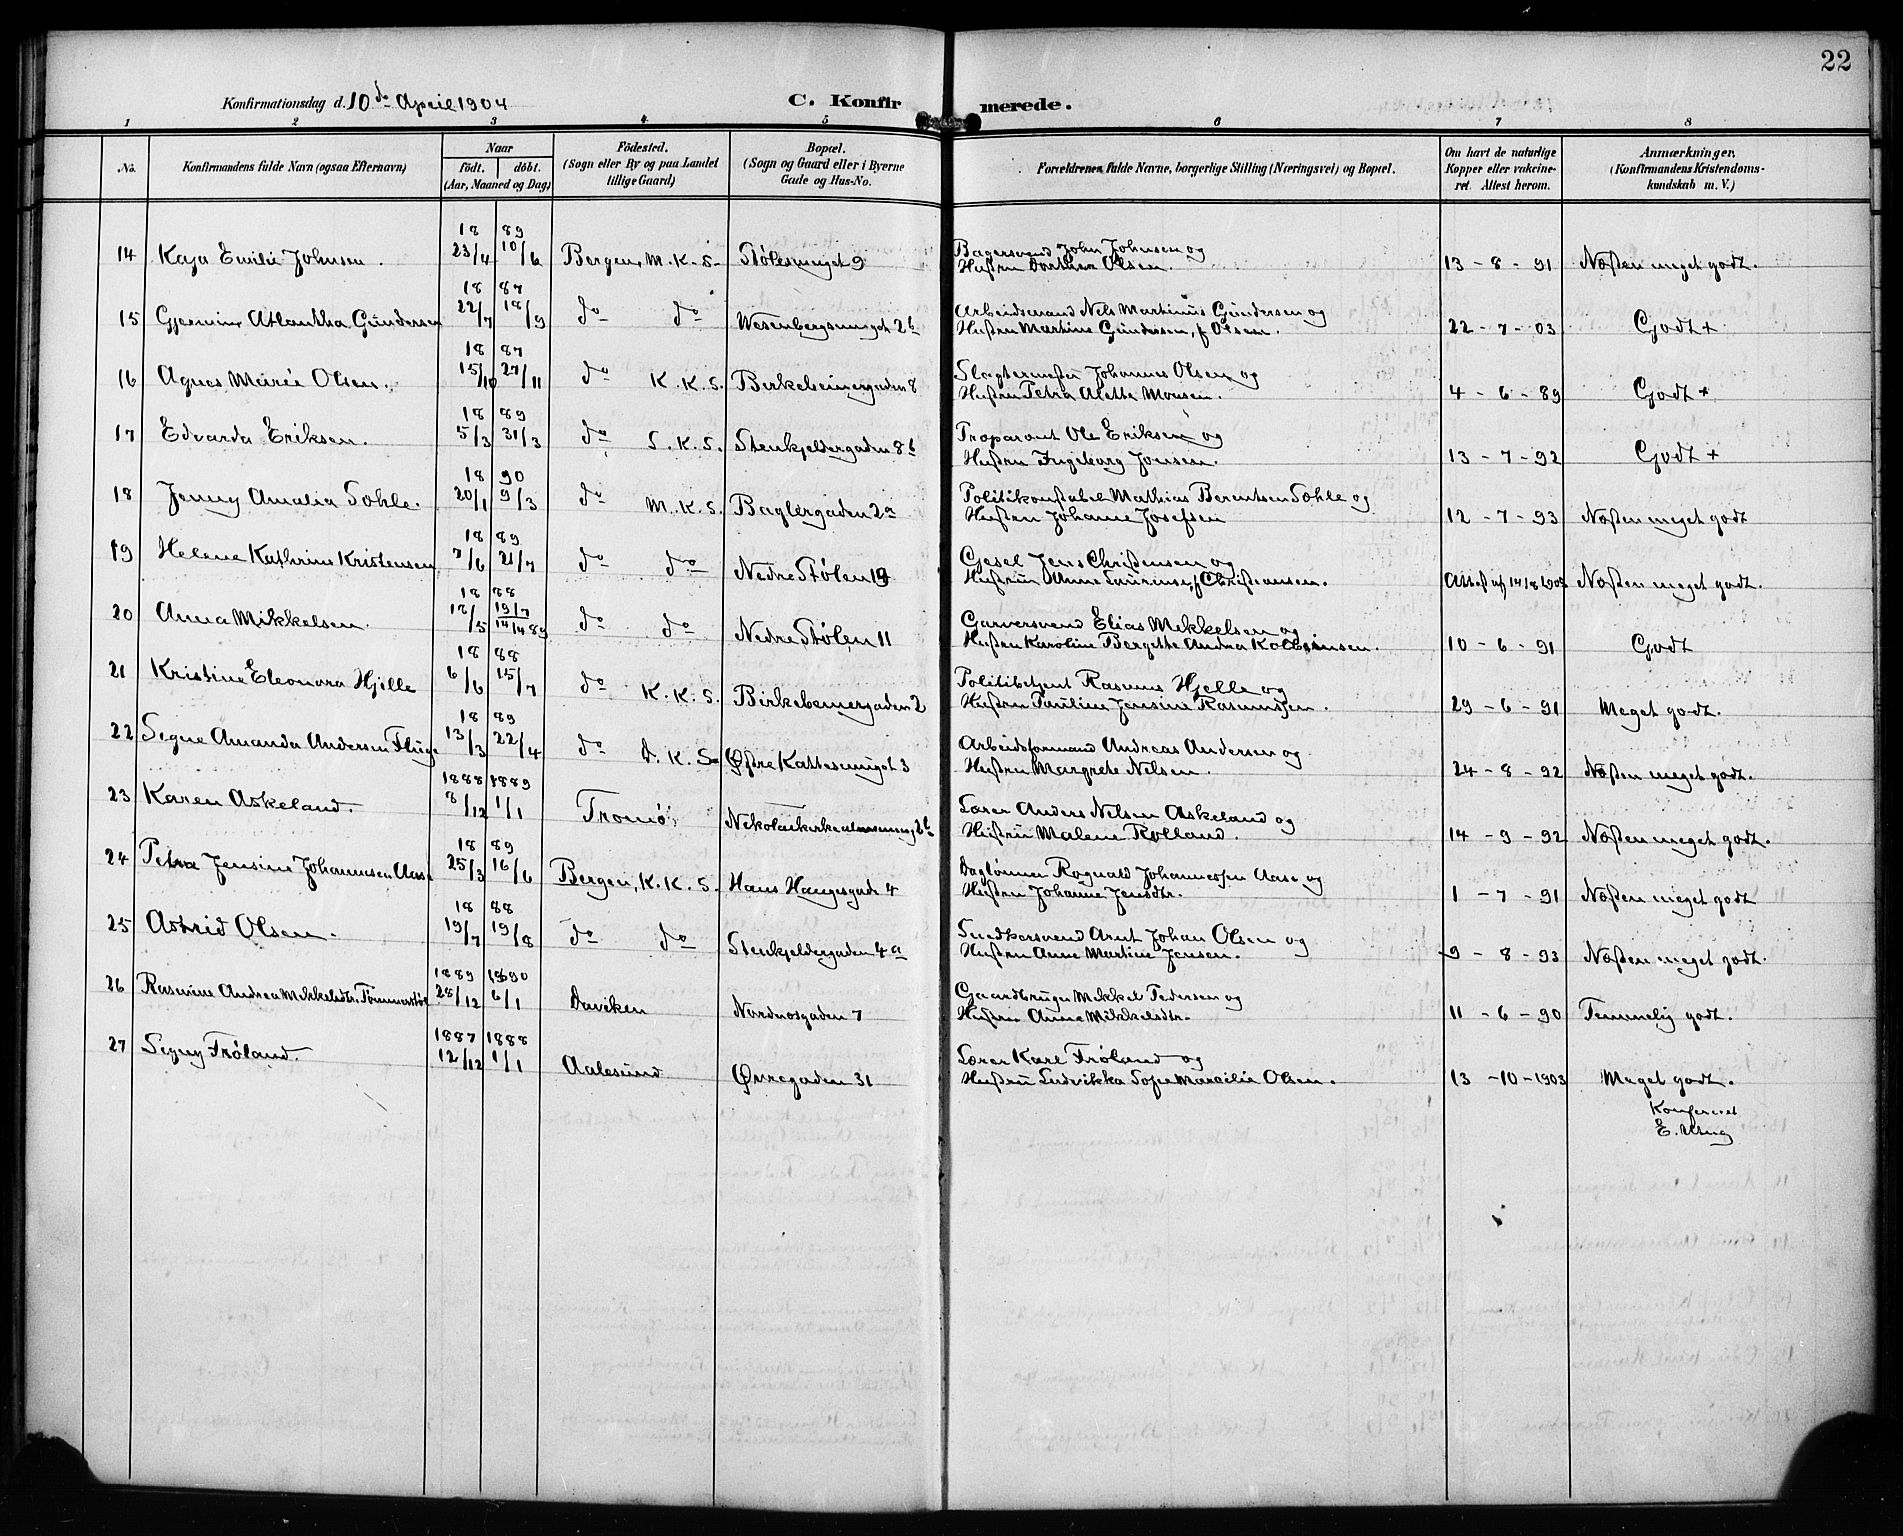 22
Konfirmationsdag d. 10de April 1904
C. Konfirmerede.
1 2 3 4 5 6 7 8
No. Konfirmandens fulde Navn (ogsaa Efternavn) Naar født. døbt. (Aar, Maaned og Dag) Fødested. (Sogn eller By og paa Landet tillige Gaard) Bopæl. (Sogn og Gaard eller i Byerne Gade og Hus-No. Forældrenes fulde Navne, borgerlige Stilling (Næringsvei) og Bopæl. Om havt de naturlige Kopper eller vakcineret. Attest herom. Anmærkninger. (Konfirmandens Kristendomskundskab m. V.)
18 89
14 Kaja Emilie Johnsen. 23/4 10/6 Bergen, M.K.S. Stølesmuget 9 Bagersvend John Johnsen og
Hustru Dorthea Olsen. 13-8-91 Næsten meget godt.
18 87
15 Gjermine Atlantha Gundersen 22/7 18/9 do do Wesenbergsmuget 2b Arbeidsmand Nels Martinus Gundersen og
Hustru Martine Gundersen, f. Olsen. 22-7-03 Godt +
18 87
16 Agnes Marie Olsen. 15/10 27/11 do K.K.S. Birkebeinergaden 8 Slagtermester Johannes Olsen og
Hustru Petra Aletta Monsen. 4-6-89 Godt +
18 89
17 Edvarda Eriksen. 5/3 31/3 do S.K.S. Stenkjeldergaden 8b Ole Eriksen og
Hustru Ingeborg Jonsen. 13-7-92 Godt +
18 90
18 Jenny Amalia Sohle. 20/1 9/3 do M.K.S. Baglergaden 2a Politikonstabel Mathias Berentsen Sohle og
Hustru Johanne Josefsen 12-7-93 Næsten meget godt
18 89
19 Helene Kathrine Kristensen 7/6 21/7 do do Nedre Stølen 19 Gesel Jens Christensen og
Hustru Anne Laurinse, f. Christiansen. Attest af 14/8 1903 Næsten meget godt.
18 88
20 Anna Mikkelsen. 18/5 19/7 14/4 89 do do Nedre Stølen 11 Garversvend Elias Mikkelsen og
Hustru Karoline Bergitte Andrea Kolbeinsen. 10-6-91 Godt
18 88
21 Kristine Eleonora Hjelle 6/6 15/7 do K.K.S. Birkebeinergaden 2 Politibetjent Rasmus Hjelle og
Hustru Pauline Jensine Rasmussen. 29-6-91 Meget godt.
18 89
22 Signe Amanda Andersen Fluge 13/3 22/4 do D.K.S. Østre Kattesmuget 3 Arbeidsformand Andreas Andersen og
Hustru Margrete Nelsen. 24-8-92 Næsten meget godt.
1888 1889
23 Karen Askeland. 8/12 1/1 Tromø Nikolaikirkealmenning 2b Lærer Anders Nelsen Askeland og
Hustru Malene Rolland. 14-9-92 Næsten meget godt.
18 89
24 Petra Jensine Johannesen Aase 25/3 16/6 Bergen, K.K.S. Hans Haugesgade 4 Daglønner Rognald Johannessen Aase og
Hustru Johanne Jensdtr. 1-7-91 Næsten meget godt
18 88
25 Astrid Olsen. 19/7 19/8 do do Stenkjeldergaden 4a Snedkersvend Arnt Johan Olsen og
Hustru Anne Martine Jensen. 9-8-93 Næsten meget godt.
1889 1890
26 Rasmine Andrea Mikkelsdtr. Tømmerstøl 28/12 6/1 Daviken Nordnesgaden 7 Gaardbruger Mikkel Pedersen og
Hustru Anne Mikkelsdtr. 11-6-90 Temmelig godt.
1887 1888
27 Signy Frøland. 12/12 1/1 Aalesund Øvregaden 31 Lærer Karl Frøland og
Hustru Ludvikka Sofie Marcilie Olsen. 13-10-1903 Meget godt.
Konfereret